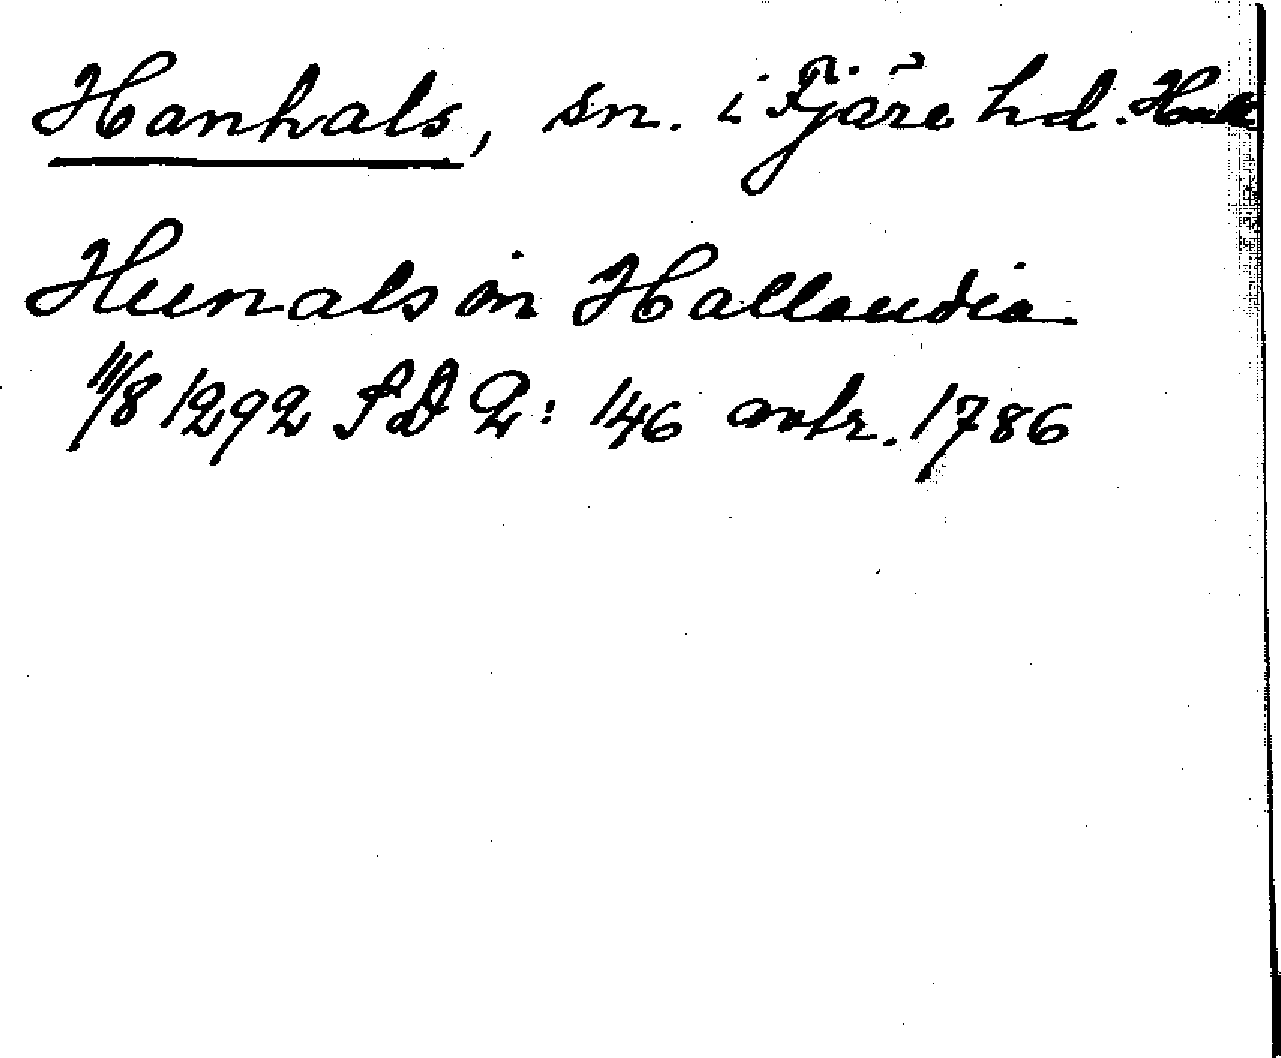 Hanhals, sn. i Fjäre hd. Hall
Hunals in Hallandia.
11/8 1292 SD 2: 146 avtr. 1786